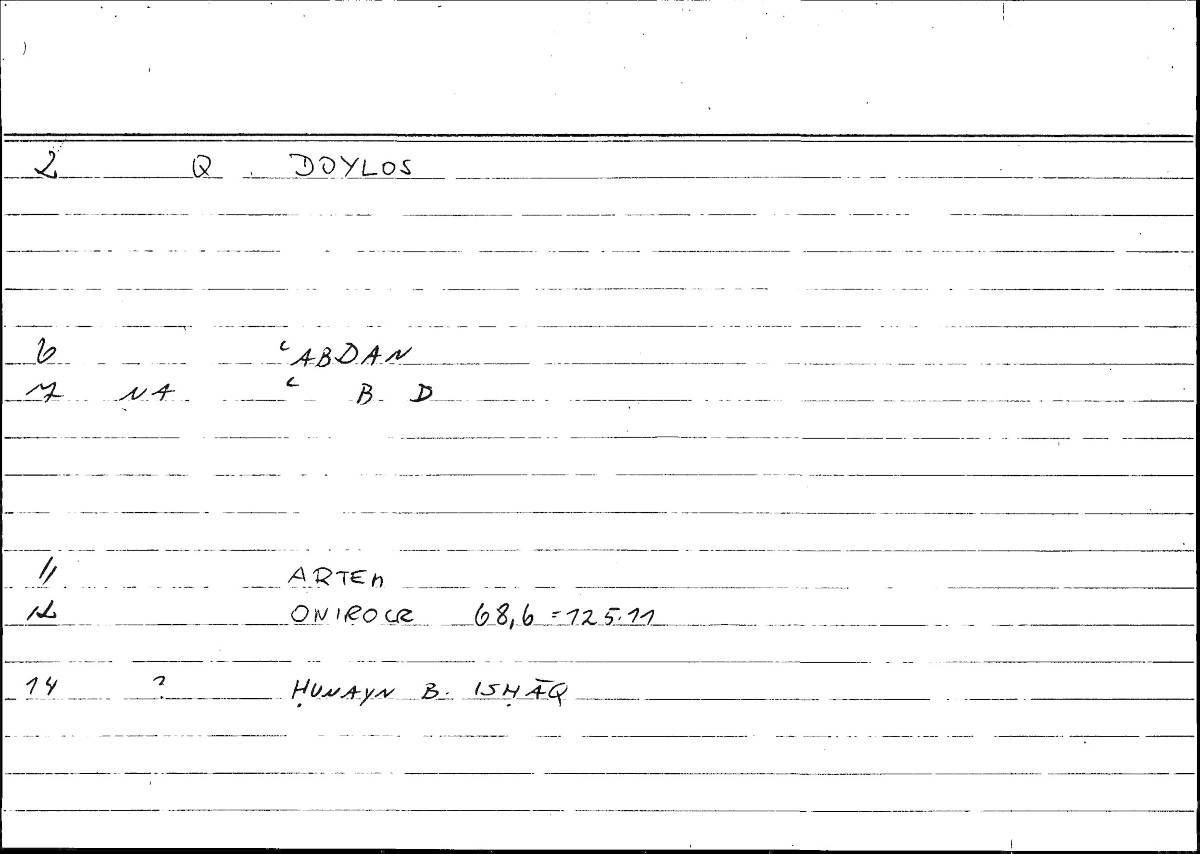 2 Q DOYLOS
6 ʿABDAN
7 NA ʿ B D
11 ARTEM
12 ONIROCR 68,6 = 125.11
14 ? ḤUNAYN B. ISḤĀQ